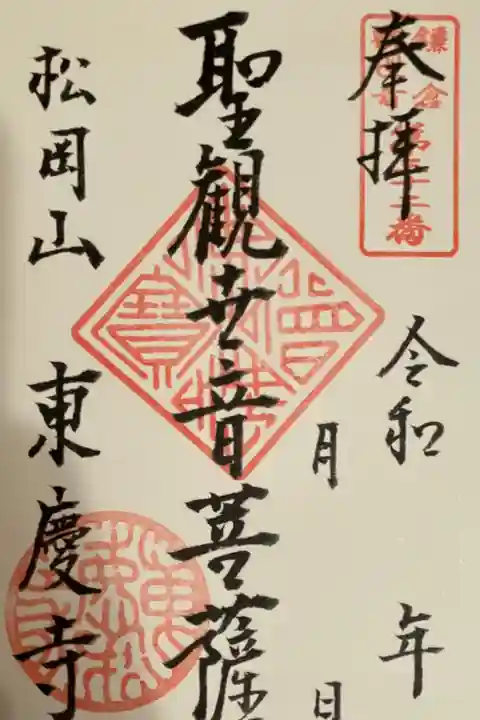 奉拝
鎌倉
令和 年
月 日
聖観世音菩薩
松岡山 東慶寺